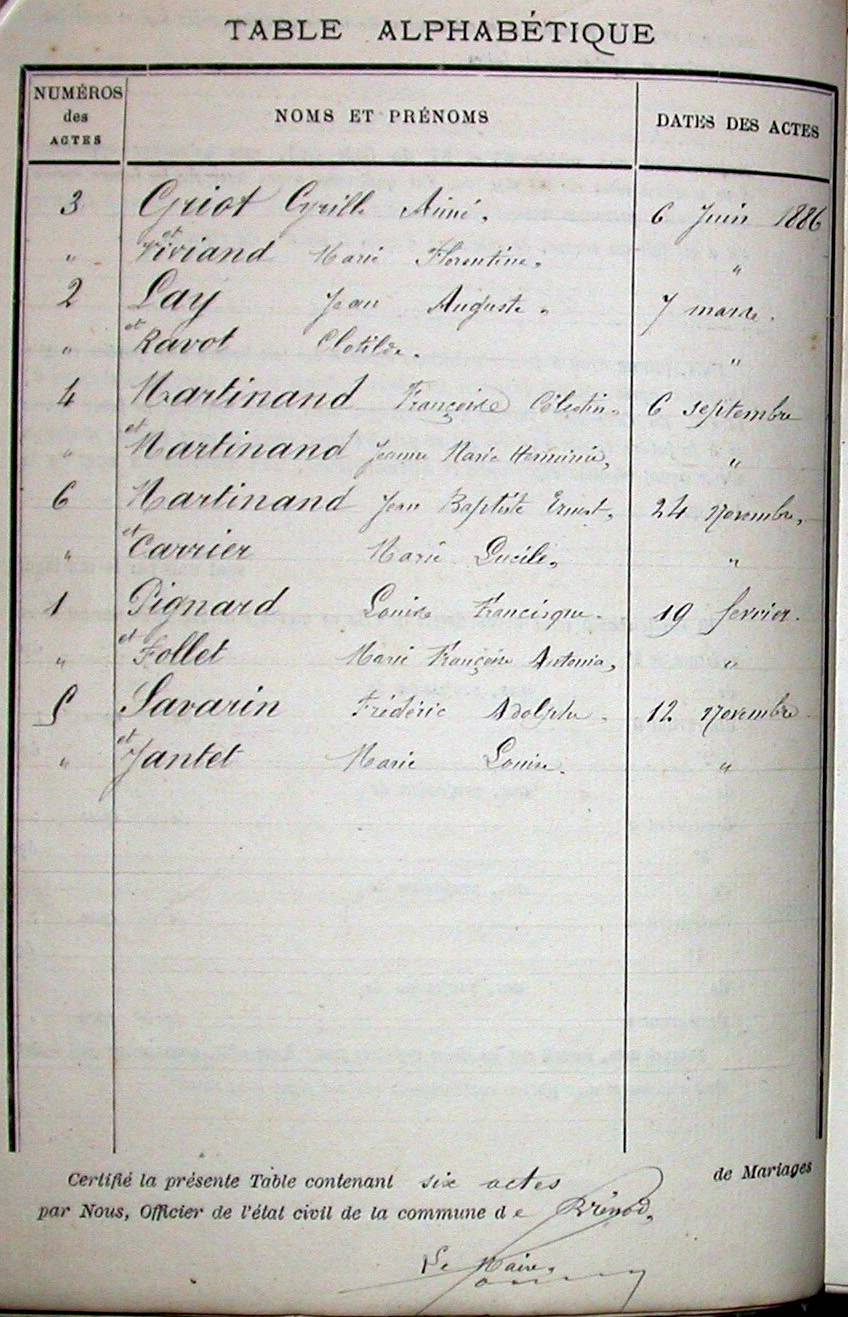 TABLE ALPHABÉTIQUE
NUMÉROS des ACTES NOMS ET PRÉNOMS DATES DES ACTES
3 Griot Cyrille Aimé. 6 Juin 1886
" et Viviand Marie Florentine. "
2 Lay Jean Auguste. 7 mars.
" et Ravot Clotilde. "
4 Martinand François Célestin. 6 septembre
" et Martinand Jeanne Marie Herminie, "
6 Martinand Jean Baptiste Ernest. 24 Novembre.
" et Carrier Marie Lucile. "
1 Pignard Louis Francisque. 19 fevrier.
" et Follet Marie Françoise Antonia, "
5 Savarin Frédéric Adolphe. 12 Novembre.
" et Jantet Marie Louise. "
Certifié la présente Table contenant six actes de Mariages
par Nous, Officier de l'état civil de la commune de Brénod.
Le Maire.